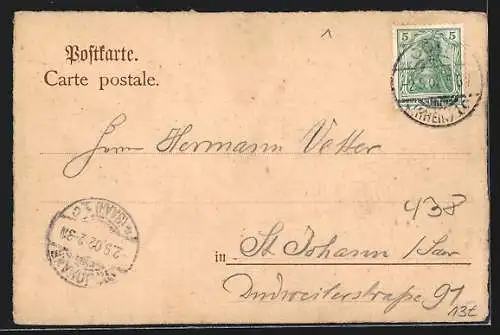 Postkarte.
Carte postale.
5 5
(RHEIN) 1 C.
Herrn Hermann Vetter
438
ST. JOHANN (SAAR)
2.9.02. 2-3N
in St Johann / Saar
Dudweilerstraße 91
13t